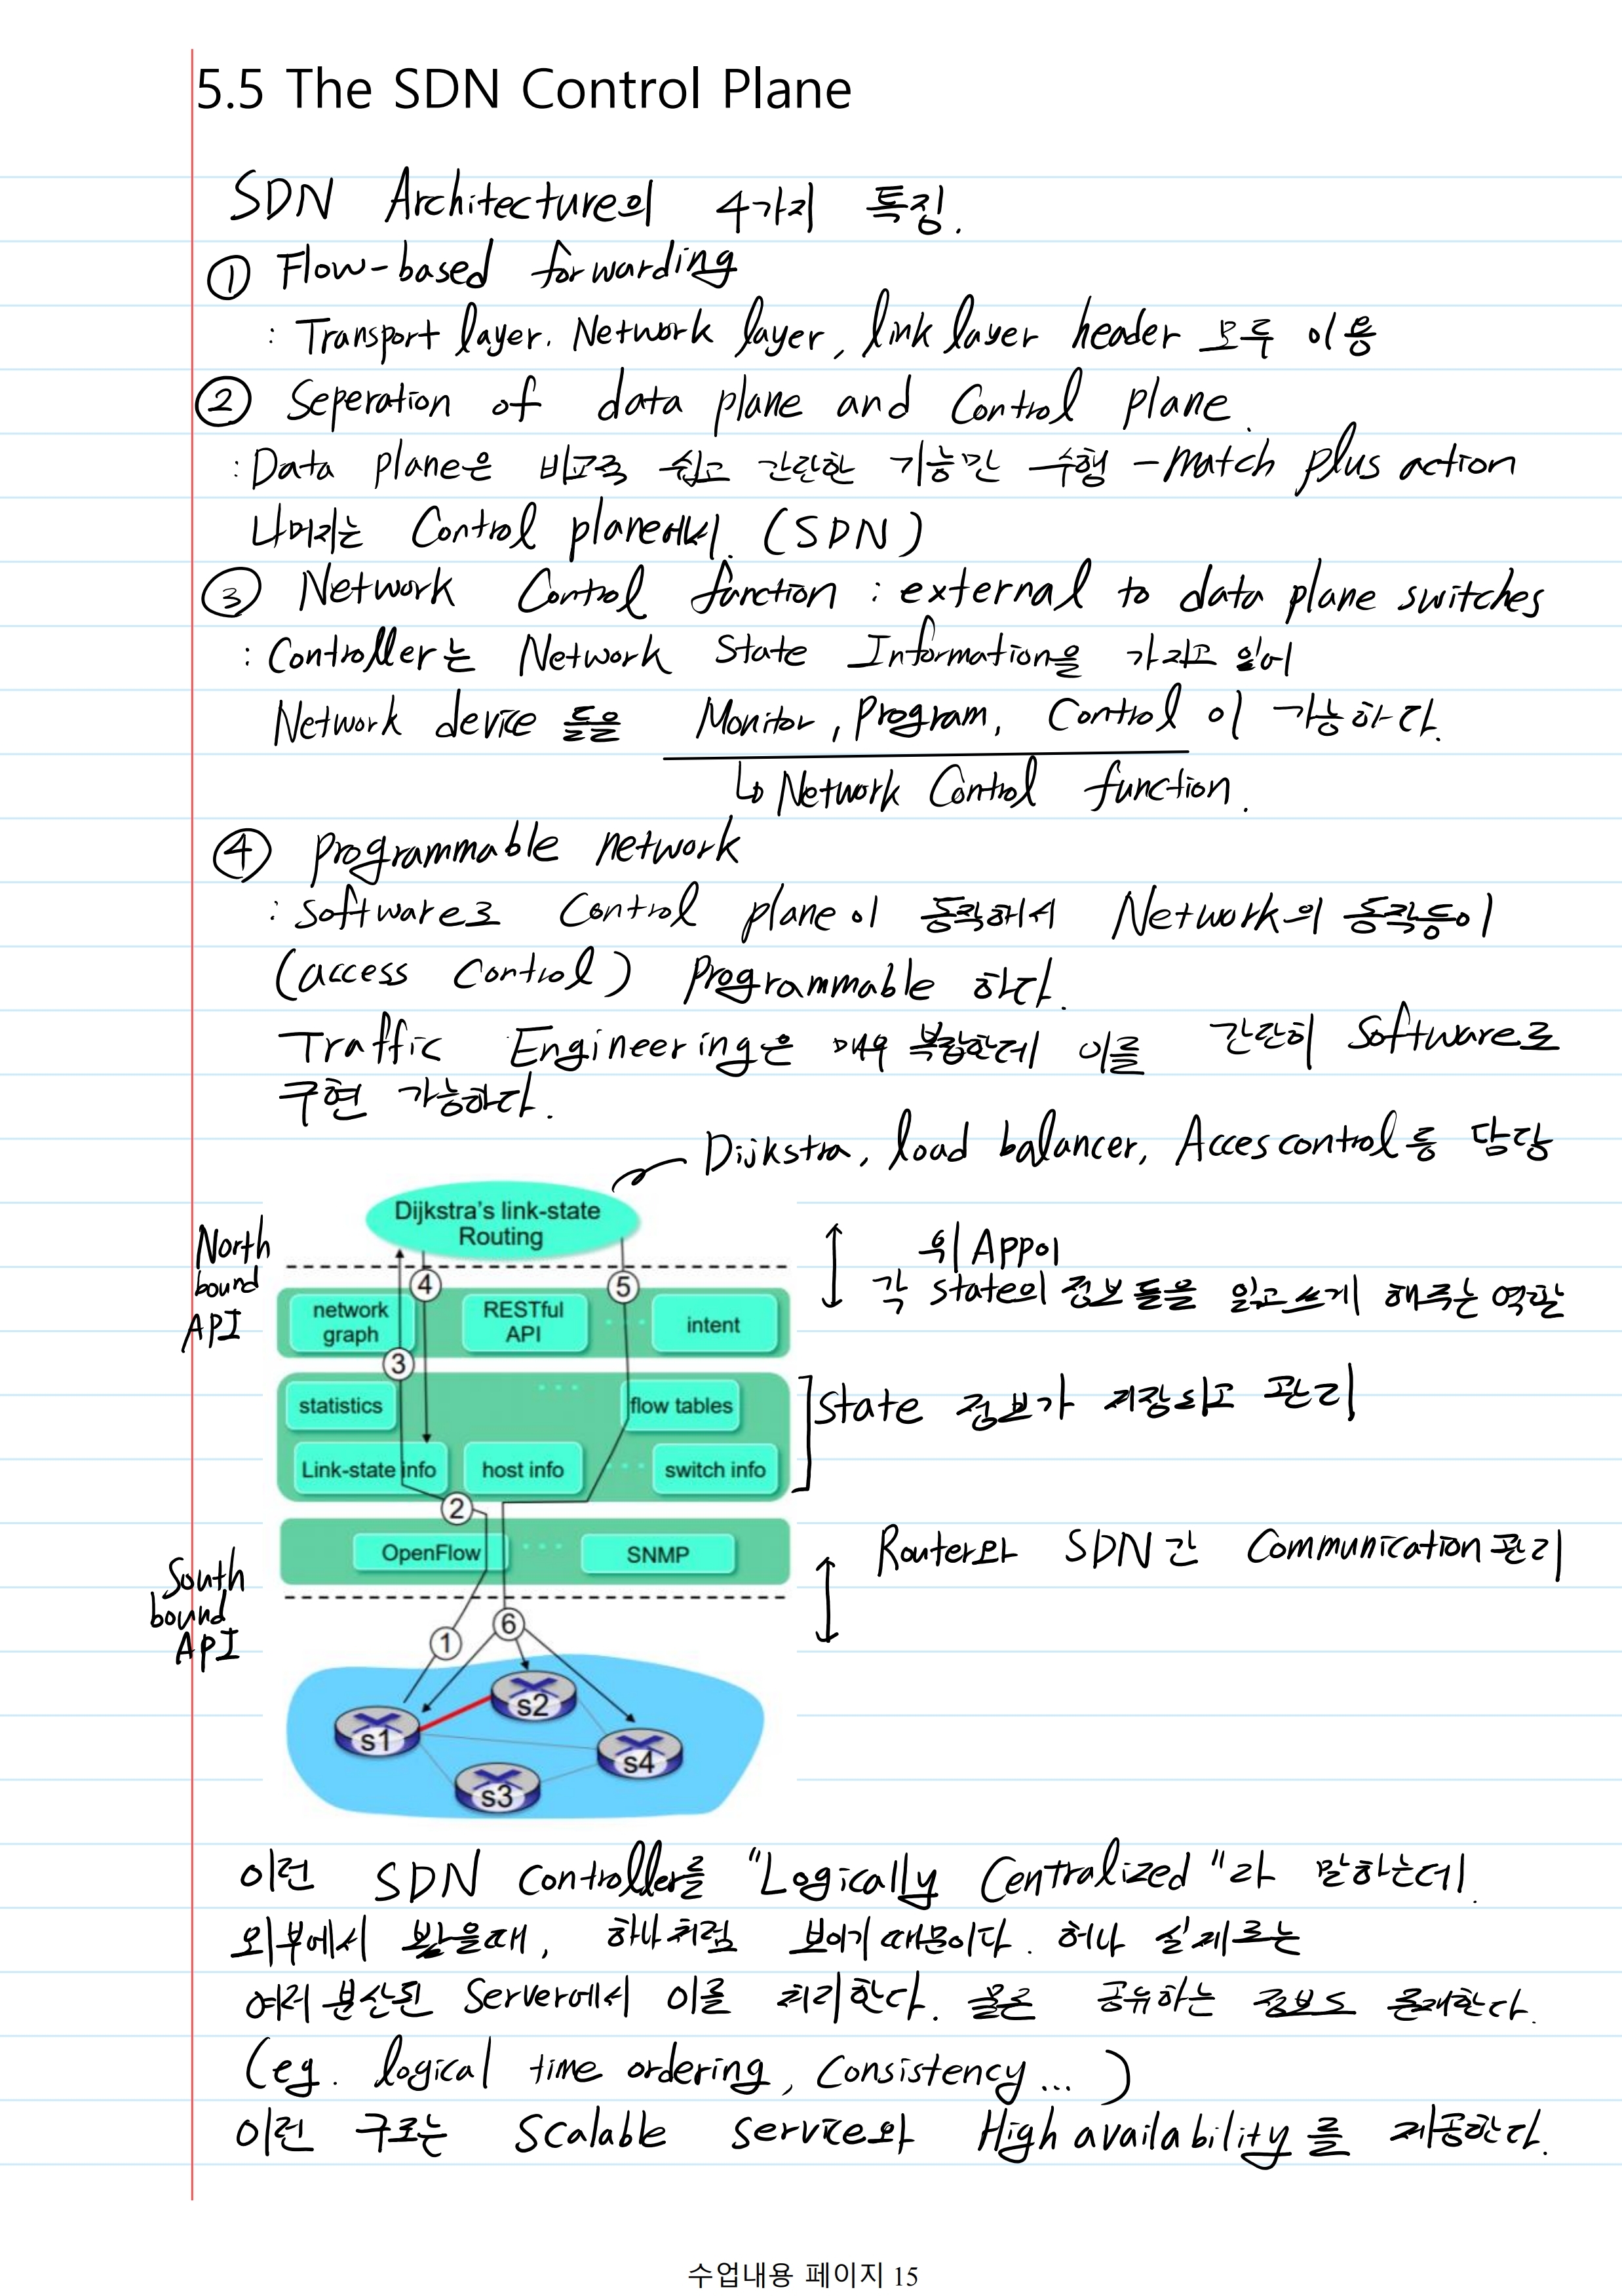 5.5 The SDN Control Plane
SDN Architecture의 4가지 특징.
① Flow-based forwarding
: Transport layer. Network layer, link layer header 모두 이용
② Seperation of data plane and Control plane.
: Data plane은 비교적 쉽고 간단한 기능만 수행 - match plus action
나머지는 Control plane에서. (SDN)
③ Network Control function : external to data plane switches
: Controller는 Network State Information을 가지고 있어
Network device 들을 Monitor, Program, Control 이 가능하다.
↳ Network Control function.
④ Programmable network
: Software로 Control plane이 동작해서 Network의 동작등이
(access Control) Programmable 하다.
Traffic Engineering은 매우 복잡한데 이를 간단히 Software로
구현 가능하다.
Dijkstra, load balancer, Acces control등 담당
Dijkstra's link-state
Routing
North
bound
API
위 App이
각 state의 정보들을 읽고 쓰게 해주는 역할
4
5
network
graph
RESTful
API
...
intent
3
statistics
...
flow tables
State 정보가 저장되고 관리
Link-state info
host info
...
switch info
2
OpenFlow
...
SNMP
Router와 SDN간 Communication관리
South
bound
API
1
6
s2
s1
s4
s3
이런 SDN Controller를 "Logically Centralized"라 말하는데
외부에서 봤을때, 하나처럼 보이기 때문이다. 허나 실제로는
여러 분산된 Server에서 이를 처리한다. 물론 공유하는 정보도 존재한다.
(eg. logical time ordering, Consistency... )
이런 구조는 Scalable Service와 High availability를 제공한다.
수업내용 페이지 15